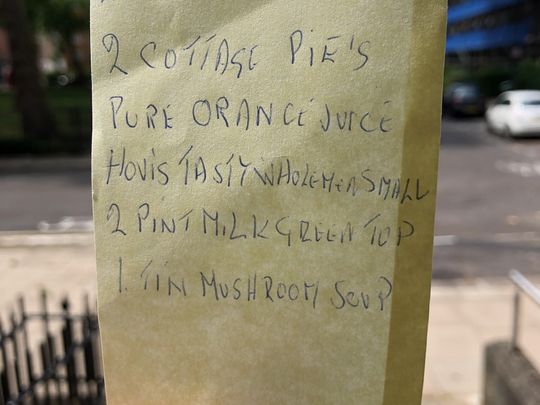 2 COTTAGE PIE'S
PURE ORANGE JUICE
HOVIS TASTY WHOLEMEA SMALL
2 PINT MILK GREEN TOP
1. TIN MUSHROOM SOUP